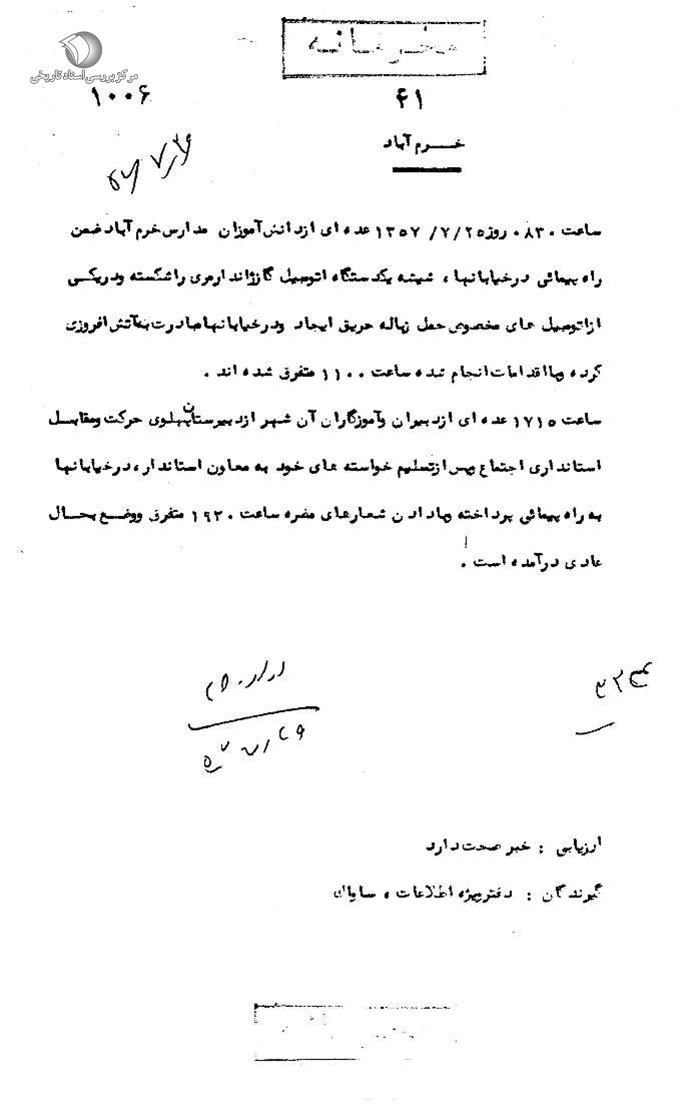 مرکز بررسی اسناد تاریخی
محرمانه
۱۰۰۶
۴۱
خرم آباد
ساعت ۰۸۳۰ روز ۱۳۵۷/۷/۲۵ عده ای از دانش آموزان مدارس خرم آباد ضمن
راه پیمائی در خیابانها، شیشه یکدستگاه اتومبیل گاز ژاندارمری را شکسته و در یکی
از اتومبیل های مخصوص حمل زباله حریق ایجاد و در خیابانها مبادرت به آتش افروزی
کرده و با اقدامات انجام شده ساعت ۱۱۰۰ متفرق شده اند.
ساعت ۱۷۱۵ عده ای از دبیران و آموزگاران آن شهر از دبیرستان پهلوی حرکت و مقابل
استانداری اجتماع و پس از تسلیم خواسته های خود به معاون استاندار، در خیابانها
به راه پیمائی پرداخته و با دادن شعارهای مضره ساعت ۱۹۲۰ متفرق و وضع بحال
عادی درآمده است.
ارزیابی : خبر صحت دارد
گیرندگان : دفتر ویژه اطلاعات، ساواک